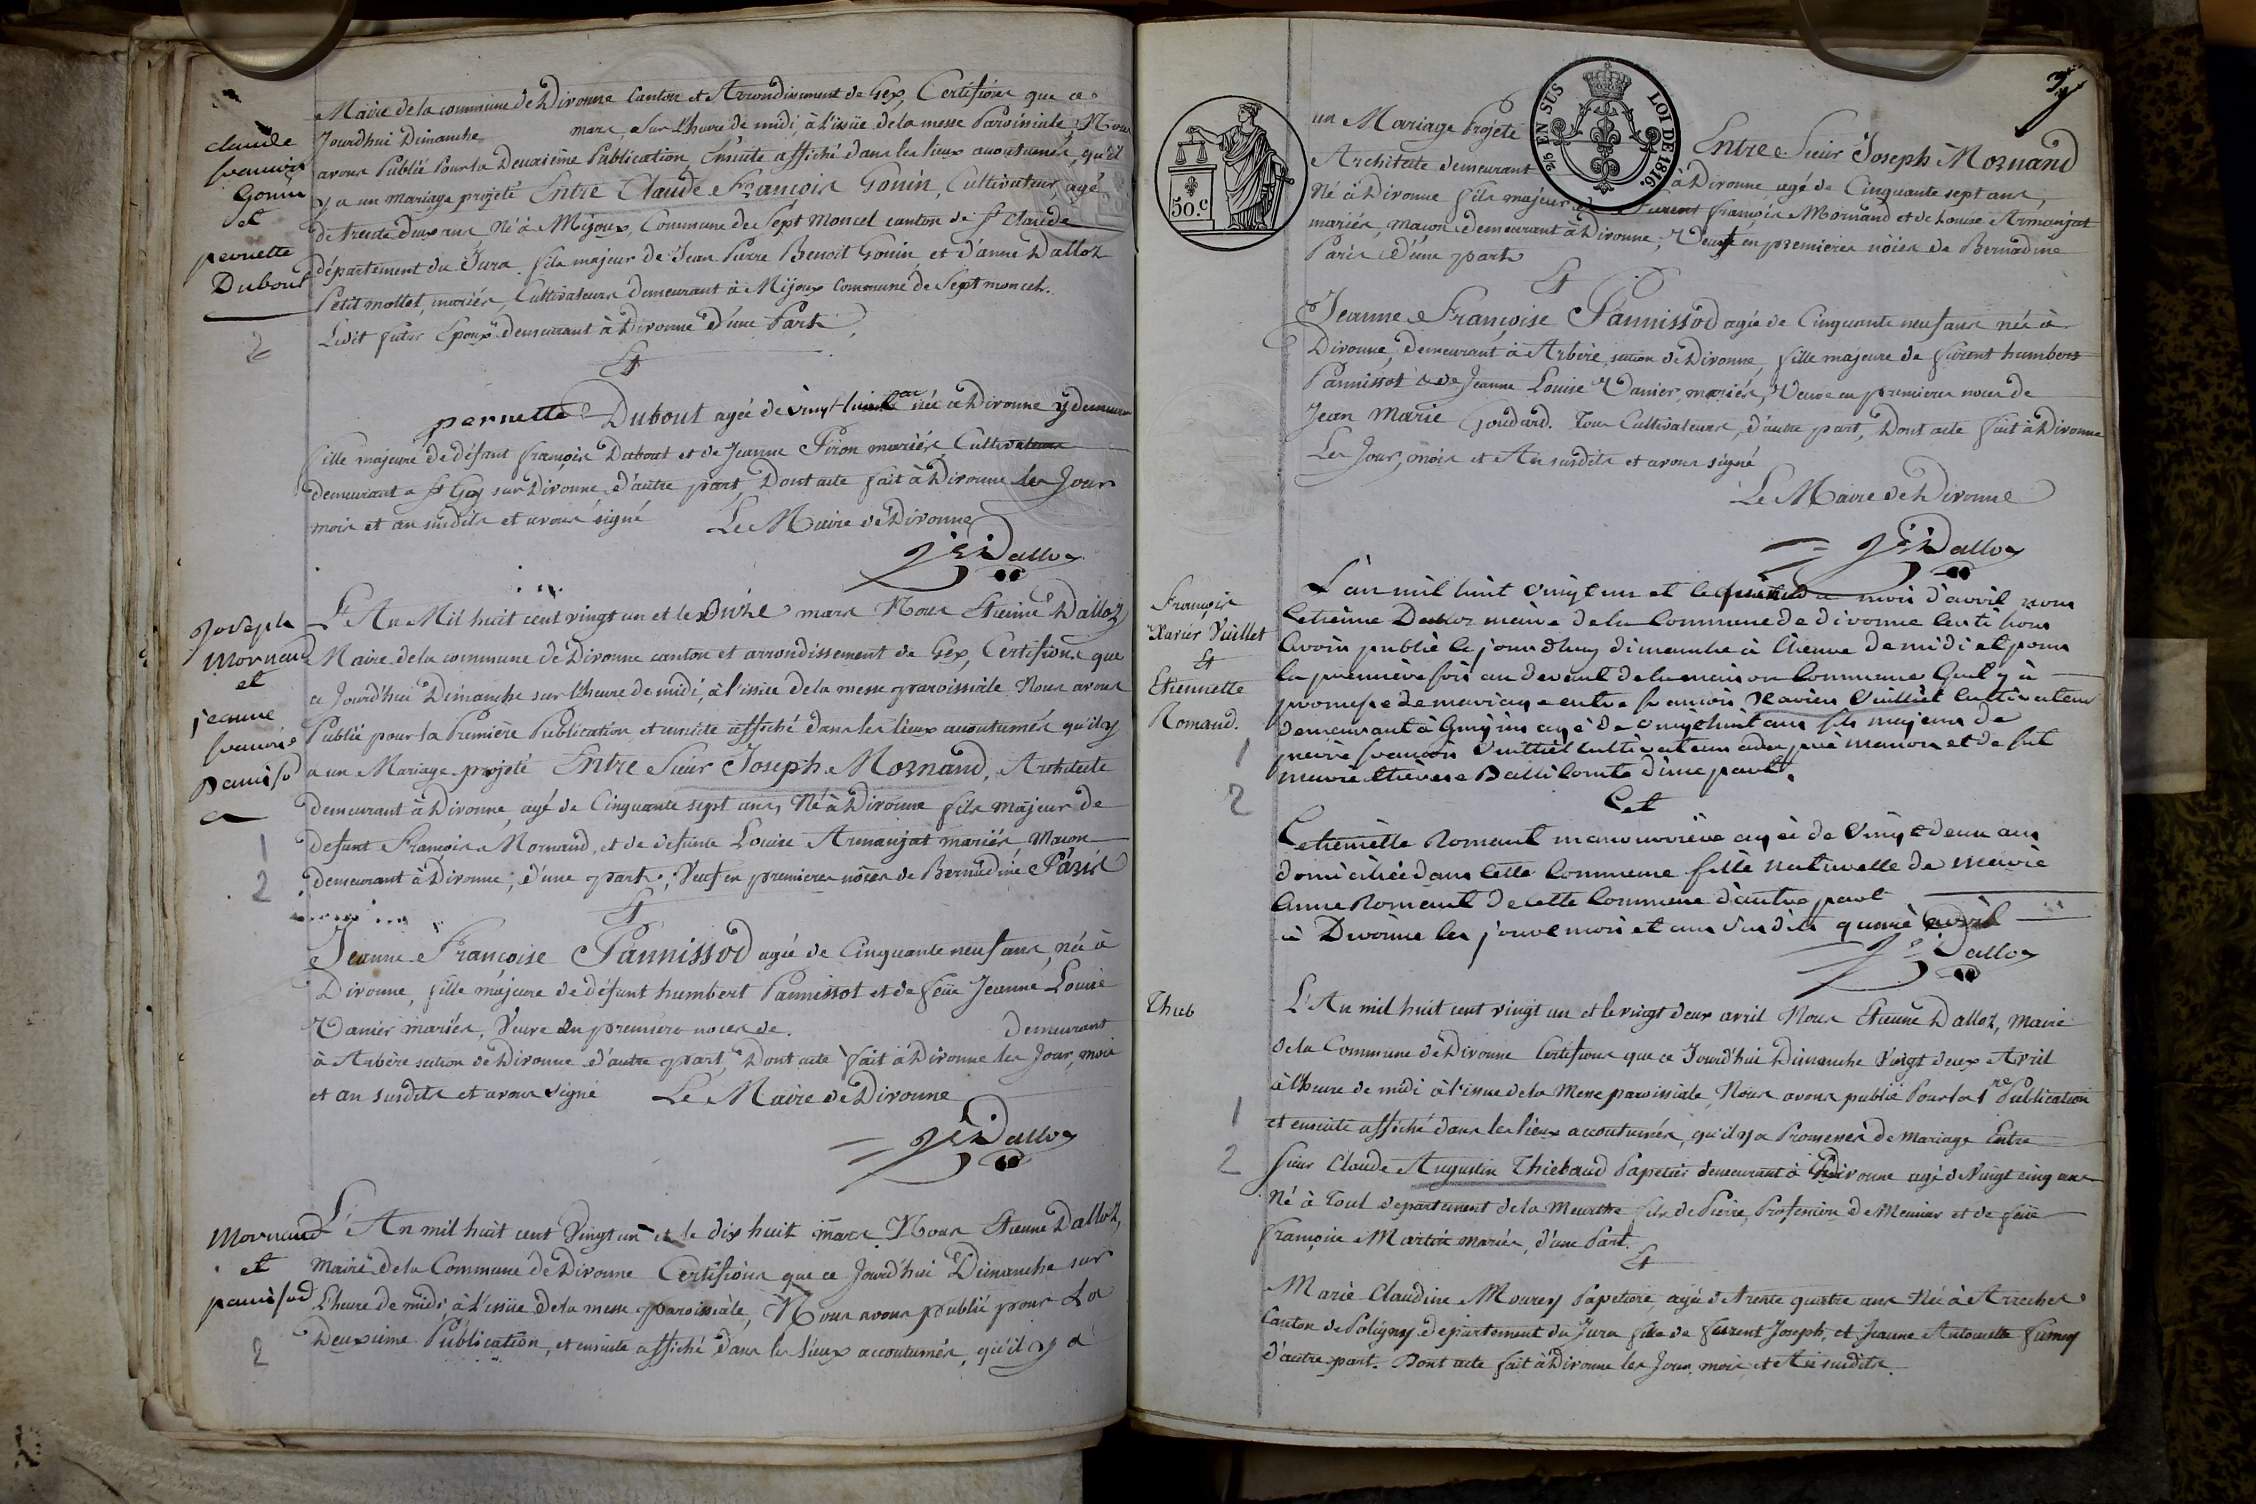 claude
francois
Gonin
et
pernette
Dubout
2
Maire de la commune de Divonne Canton et Arrondissement de Gex, Certifions que ce
Jourd'hui Dimanche mars, Sur l'heure de midi, à l'issüe de la messe Paroissiale, Nous
avons Publié Pour la Deuxième Publication, Ensuite affiché dans les lieux accoutumés, qu'il
y a un mariage projeté Entre Claude François Gonin, Cultivateur, agé
de trente deux ans Né à Mijoux, Commune de Sept moncel canton de St Claude
département du Jura fils majeur de Jean Pierre Benoit Gonin et d'anne Dalloz
Petit mottet, mariés, Cultivateurs demeurant à Mijoux Commune de Septmoncel.
Ledit futur Epoux demeurant à Divonne d'une Part
Et
pernette Dubout agée de vingt née à Divonne y demeurant
fille majeure de défunt françois Dubout et de Jeanne Piron mariés, Cultivateurs
demeurant a St Gix sur Divonne, d'autre part, Dont acte fait à Divonne les Jour
mois et an susdits et avons signé Le Maire de Divonne
Dalloz
Joseph
Mornand
et
jeanne
francoise
Panissod
1
2
L'An Mil huit cent vingt un et le onze mars Nous Etienne Dalloz
Maire de la commune de Divonne canton et arrondissement de Gex, Certifions que
ce Jourd'hui Dimanche sur l'heure de midi, à l'issüe de la messe paroissiale Nous avons
Publié pour la Première Publication et ensuite affiché dans les lieux accoutumés qu'il y
a un Mariage projeté Entre Sieur Joseph Mornand, Architecte
demeurant à Divonne, agé de Cinquante sept ans, Né à Divonne fils majeur de
defunt Francois Mornand, et de defunte Louise Armanjat mariés Macon
demeurant à Divonne, d'une part, Veuf en premieres nôces de Bernadine Paris
Et
Jeanne Françoise Pannissod agée de Cinquante neuf ans, née à
Divonne, fille majeure de défunt humbert Pannissot et de feüe Jeanne Louise
Vanier mariés, Veuve en premiere noces de. demeurant
à Arbère section de Divonne d'autre part, Dont acte fait à Divonne les Jour, mois
et an susdits et avons signé Le Maire de Divonne
Dalloz
Mornand
et
panissod
2
L'An mil huit cent Vingt un et le dix huit mars Nous Etienne Dalloz,
Maire de la Commune de Divonne Certifions que ce Jourd'hui Dimanche sur
l'heure de midi à l'issüe de la messe paroissiale, Nous avons publié pour La
Deuxième Publication, et ensuite affiché dans les lieux accoutumés, qu'il y a
un Mariage Projeté Entre Sieur Joseph Mornand
25 EN SUS LOI DE 1816.
50.c
Architecte demeurant à Divonne, agé de Cinquante sept ans,
Né à Divonne fils majeur de françois Mornand et de Louise Armanjat
mariés, macon demeurant à Divonne, Veuf en premieres nôces de Bernadine
Paris d'une part
Et
Jeanne Françoise Pannissod agée de Cinquante neuf ans née à
Divonne, demeurant à Arbère, section de Divonne, fille majeure de humbert
Pannissot & de Jeanne Louise Vanier mariés, Veuve en premieres noces de
Jean Marie Goudard. Tous Cultivateurs, d'autre part, Dont acte fait à Divonne
Les Jour, mois et An susdits et avons signé
Le Maire de Divonne
Dalloz
François
Xavier Vuillet
Et
Etiennette
Romand.
1
2
L'an mil huit vingt un et le mois d'avril nous
Etienne Dalloz maire de la Commune de divonne Certifions
avoir publié ce jourdhuy dimanche à l'heure de midi et pour
la première fois au devant de la maison Commune quil y à
promesse de mariage entre francois Xavier Vuilliet cultivateur
demeurant à agé de vingt huit ans fils majeur de
pierre francois Vuilliet cultivateur et de fut
d'une part.
Et
Etiennette Romand manouvrière agée de vingt deux ans
domiciliée dans cette Commune fille naturelle de marie
anne Romand de cette Commune d'autre part
à Divonne les jour mois et an susdits avril
Dalloz
Thieb
1
2
L'An mil huit cent vingt un et le vingt deux avril Nous Etienne Dalloz, Maire
de la Commune de Divonne Certifions que ce Jourd'hui Dimanche Vingt deux Avril
à l'heure de midi à l'issue de la Messe paroissiale, Nous avons publié Pour la 1re Publication
et ensuite affiché dans les lieux accoutumés, qu'il y a Promesses de Mariage Entre
Sieur Claude Augustin Thiébaud Papetier demeurant à Divonne agé de Vingt cinq ans
Né à Toul departement de la Meurthe fils de Pierre, Profession de Meunier et de feüe
Françoise Martin mariés, d'une Part.
Et
Marie Claudine Mourey Papetiere, agée de trente quatre ans Née à Arreches
Canton de Poligny departement du Jura fille de Joseph, et Jeanne Antoinette Fumey
d'autre part. Dont acte fait à Divonne les Jour, mois, et An susdits.